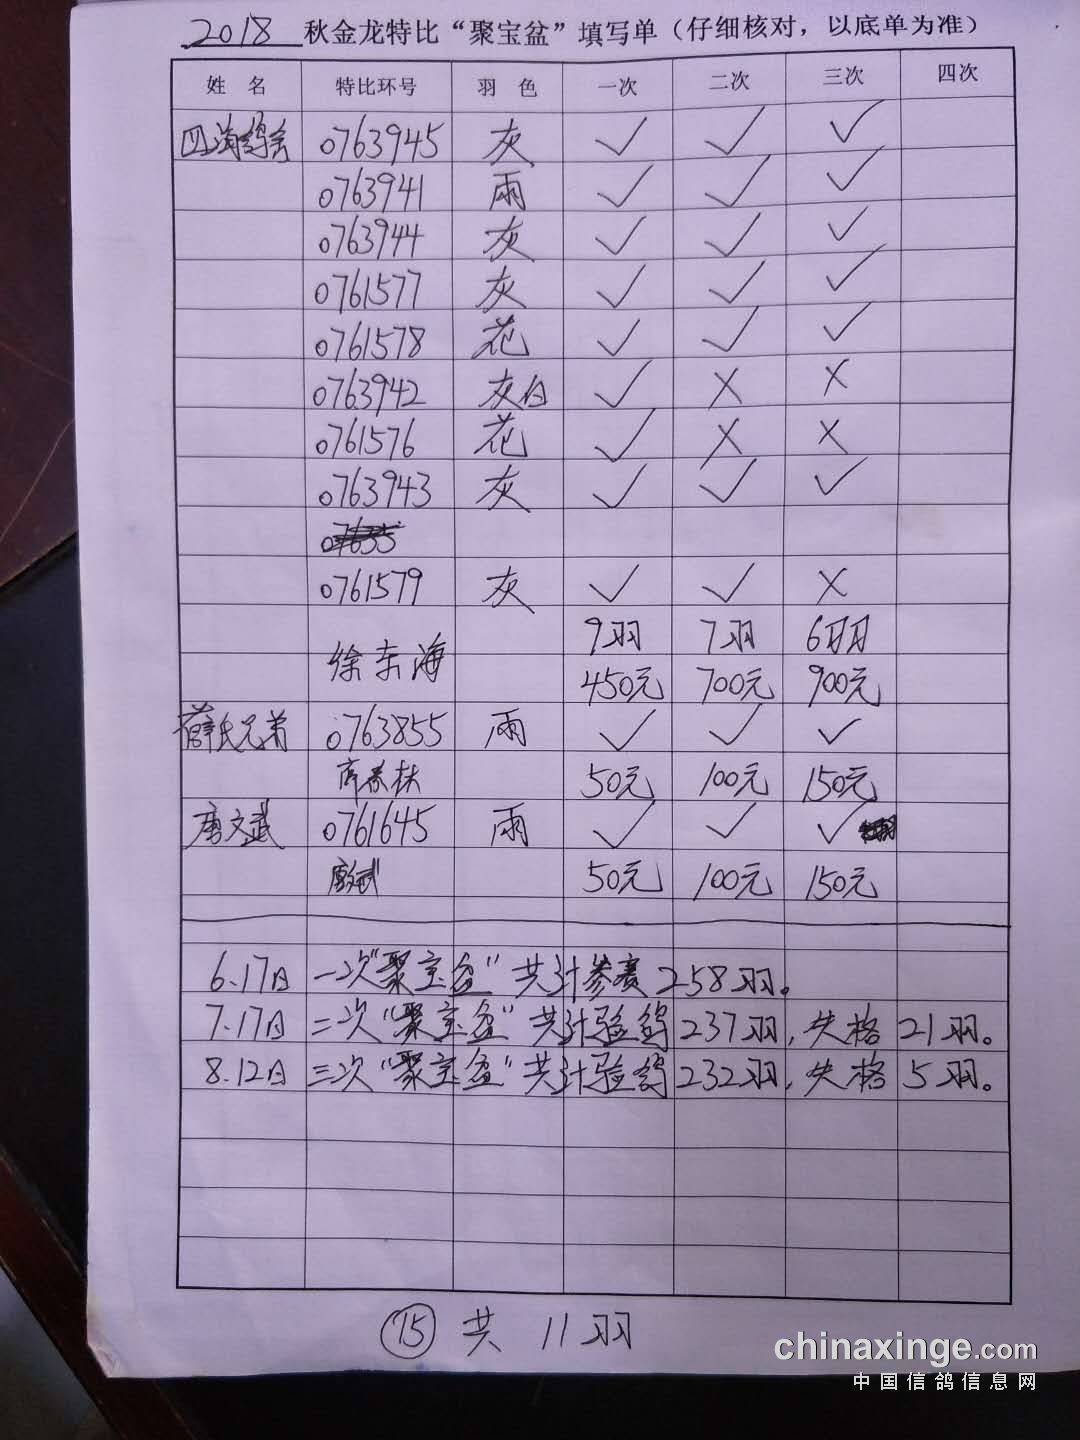 2018 秋金龙特比“聚宝盆”填写单（仔细核对，以底单为准）
姓 名 特比环号 羽 色 一次 二次 三次 四次
四海鸽舍 0763945 灰 ✓ ✓ ✓
0763941 雨 ✓ ✓ ✓
0763944 灰 ✓ ✓ ✓
0761577 灰 ✓ ✓ ✓
0761578 花 ✓ ✓ ✓
0763942 灰白 ✓ X X
0761576 花 ✓ X X
0763943 灰 ✓ ✓ ✓
0761579 灰 ✓ ✓ X
9羽 7羽 6羽
徐东海
450元 700元 900元
薛氏兄弟 0763855 雨 ✓ ✓ ✓
50元 100元 150元
唐文武 0761645 雨 ✓ ✓ ✓
50元 100元 150元
6.17日 一次“聚宝盆”共计参赛258羽。
7.17日 二次“聚宝盆”共计验鸽237羽,失格21羽。
8.12日 三次“聚宝盆”共计验鸽232羽,失格5羽。
75 共 11羽
chinaxinge.com
中国信鸽信息网